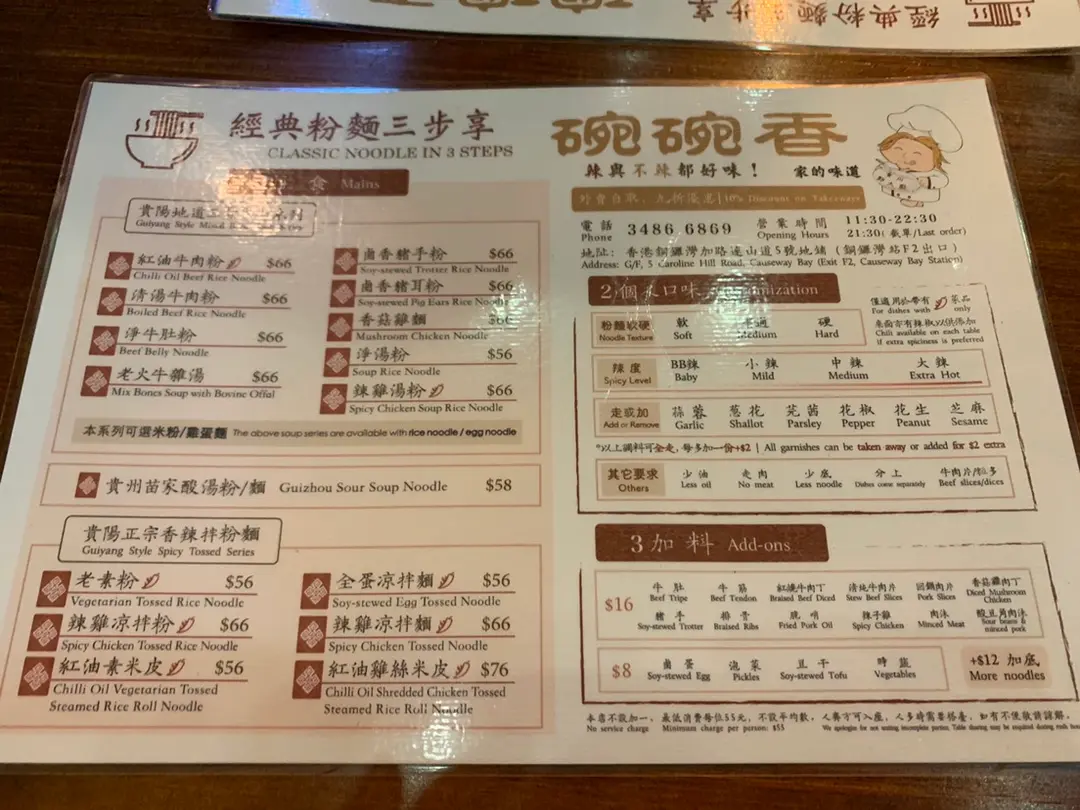 經典粉麵三步享
經典粉麵三步享
CLASSIC NOODLE IN 3 STEPS
食 Mains
Guiyang Style
紅油牛肉粉 $66
Chilli Oil Beef Rice Noodle
清湯牛肉粉 $66
Boiled Beef Rice Noodle
淨牛肚粉 $66
Beef Belly Noodle
老火牛雜湯 $66
Mix Bones Soup with Bovine Offal
鹵香豬手粉 $66
Soy-stewed Trotter Rice Noodle
鹵香豬耳粉 $66
Soy-stewed Pig Ears Rice Noodle
香菇雞麵 $66
Mushroom Chicken Noodle
淨湯粉 $56
Soup Rice Noodle
辣雞湯粉 $66
Spicy Chicken Soup Rice Noodle
本系列可選米粉/雞蛋麵 The above soup series are available with rice noodle / egg noodle
貴州苗家酸湯粉/麵 Guizhou Sour Soup Noodle $58
貴陽正宗香辣拌粉麵
Guiyang Style Spicy Tossed Series
老素粉 $56
Vegetarian Tossed Rice Noodle
辣雞凉拌粉 $66
Spicy Chicken Tossed Rice Noodle
紅油素米皮 $56
Chilli Oil Vegetarian Tossed
Steamed Rice Roll Noodle
全蛋凉拌麵 $56
Soy-stewed Egg Tossed Noodle
辣雞凉拌麵 $66
Spicy Chicken Tossed Noodle
紅油雞絲米皮 $76
Chilli Oil Shredded Chicken Tossed
Steamed Rice Roll Noodle
碗碗香
辣與不辣都好味！ 家的味道
外賣自取，九折優惠 | 10% Discount on Takeaways
電話 3486 6869 營業時間 11:30-22:30
Phone Opening Hours 21:30( 截單/Last order)
地址: 香港銅鑼灣加路連山道5號地鋪 (銅鑼灣站F2出口)
Address: G/F, 5 Caroline Hill Road, Causeway Bay (Exit F2, Causeway Bay Station)
2 個人口味
僅適用於帶有 菜品
For dishes with only
桌面亦有辣椒以供添加
Chili available on each table
if extra spiciness is preferred
粉麵软硬 軟 普通 硬
Noodle Texture Soft Medium Hard
辣度 BB辣 小辣 中辣 大辣
Spicy Level Baby Mild Medium Extra Hot
走或加 蒜蓉 葱花 芫茜 花椒 花生 芝麻
Add or Remove Garlic Shallot Parsley Pepper Peanut Sesame
*以上調料可全走，每多加一份+$2 | All garnishes can be taken away or added for $2 extra
其它要求 少油 走肉 少底 分上 牛肉片/粒多
Others Less oil No meat Less noodle Dishes come separately Beef slices/dices
3 加料 Add-ons
$16
牛肚 牛筋 紅燒牛肉丁 清炖牛肉片 回鍋肉片 香菇雞肉丁
Beef Tripe Beef Tendon Braised Beef Diced Stew Beef Slices Pork Slices Diced Mushroom Chicken
豬手 排骨 脆哨 辣子雞 肉沫 酸豆角肉沫
Soy-stewed Trotter Braised Ribs Fried Pork Oil Spicy Chicken Minced Meat Sour beans & minced pork
$8 鹵蛋 泡菜 豆干 時蔬
Soy-stewed Egg Pickles Soy-stewed Tofu Vegetables
+$12 加底
More noodles
本店不設加一，最低消費每位55元，不設平均數，人齊方可入座，人多時需要搭臺，如有不便敬請諒解。
No service charge Minimum charge per person: $55 We apologize for not seating incomplete parties. Table sharing may be required during rush